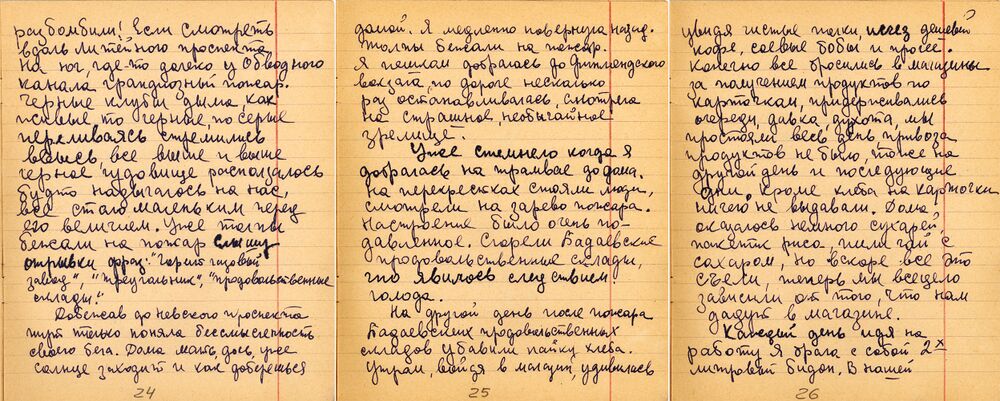 разбомбили! Если смотреть
вдоль Литейного проспекта
на юг, где-то далеко у Обводного
канала грандиозный пожар.
Черные клубы дыма как
живые то черные, то серые
переливаясь стремились
ввысь, все выше и выше
черное чудовище расползалось
будто надвигалось на нас,
все стало маленьким перед
его величием. Уже толпы
бежали на пожар слышу
отрывки фраз: "горит газовый
завод", "треугольник", "продовольственные
склады."
Добежав до Невского проспекта
тут только поняла бессмысленность
своего бега. Дома мать, дочь, уже
солнце заходит и как доберешься
24
домой. Я медленно повернула назад.
Толпы бежали на пожар.
Я пешком добралась до Финляндского
вокзала, по дороге несколько
раз останавливалась, смотрела
на страшное, необычайное
зрелище.
Уже стемнело когда я
добралась на трамвае до дома.
На перекрестках стояли люди,
смотрели на зарево пожара.
Настроение было очень по-
давленное. Сгорели Бадаевские
продовольственные склады,
что явилось следствием
голода.
На другой день после пожара
Бадаевских продовольственных
складов убавили пайку хлеба.
Утром, войдя в магазин, удивилась
25
увидя чистые полки, исчез дешевый
кофе, соевые бобы и прочее.
Конечно все бросились в магазины
за получением продуктов по
карточкам, придерживались
очереди, давка, духота, мы
простояли весь день, привоза
продуктов не было, тоже на
другой день и последующие
дни, кроме хлеба на карточки
ничего не выдавали. Дома
оказалось немного сухарей,
пакетик риса, пили чай с
сахаром, но вскоре все это
съели, теперь мы всецело
зависили от того, что нам
дадут в магазине.
Каждый день идя на
работу я брала с собой 2х
литровый бидон. В нашей
26